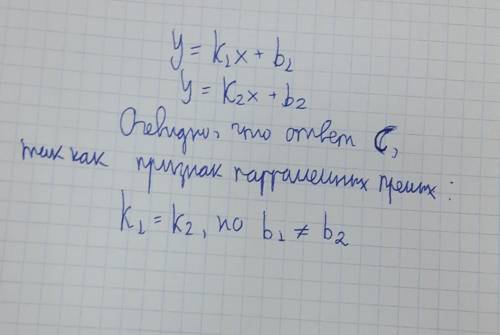 y = k₁x + b₁
y = k₂x + b₂
Очевидно, что ответ C,
так как признак паралельных прямых:
k₁ = k₂, но b₁ ≠ b₂